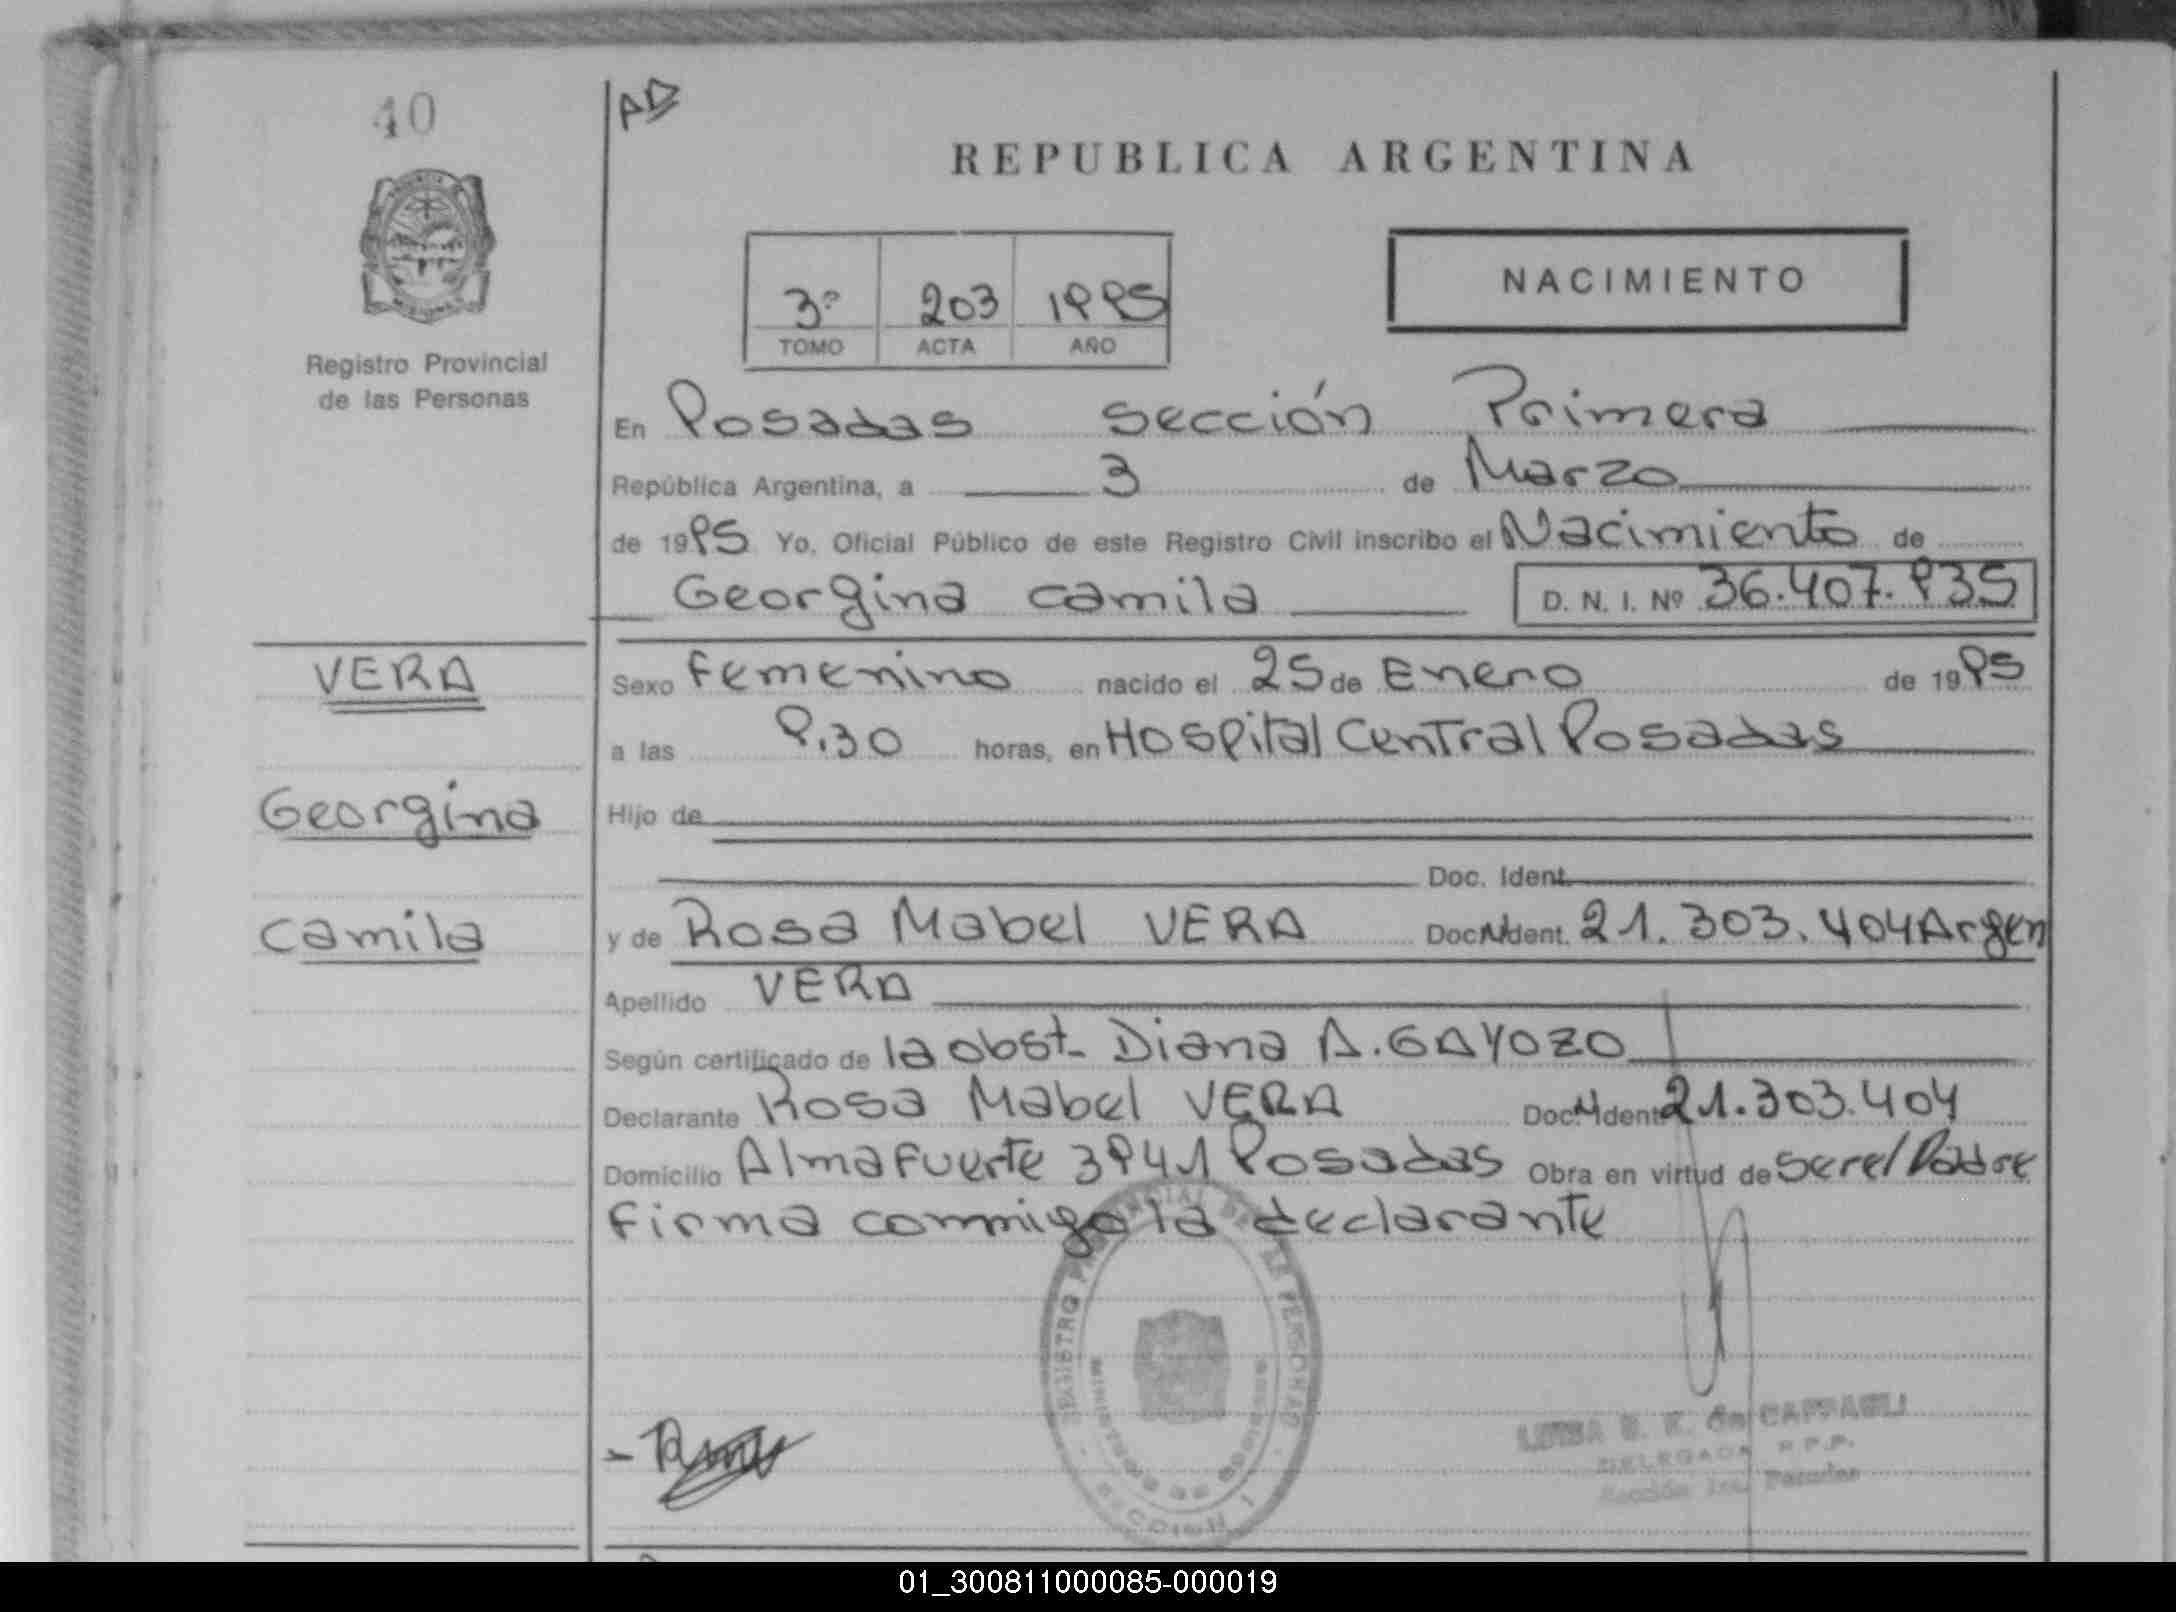 40
AD
REPUBLICA ARGENTINA
3º 203 1995
TOMO ACTA AÑO
NACIMIENTO
Registro Provincial
de las Personas
En Posadas sección Primera
República Argentina, a 3 de Marzo
de 1995 Yo, Oficial Público de este Registro Civil inscribo el Nacimiento de
Georgina camila D. N. I. Nº 36.407.935
VERA
Georgina
camila
Sexo femenino nacido el 25 de Enero de 1995
a las 9.30 horas, en Hospital Central Posadas
Hijo de
Doc. Ident.
y de Rosa Mabel VERA Doc. Ident. 21.303.404 Argen
Apellido VERA
Según certificado de la obst. Diana A. GAYOZO
Declarante Rosa Mabel VERA Doc. Ident. 21.303.404
Domicilio Almafuerte 3941 Posadas Obra en virtud de ser el Padre
firma conmigo la declarante
REGISTRO PROVINCIAL DE LAS PERSONAS
SECCION 1
DELEGADA R.P.P.
Sección 1ra. Posadas
01_300811000085-000019